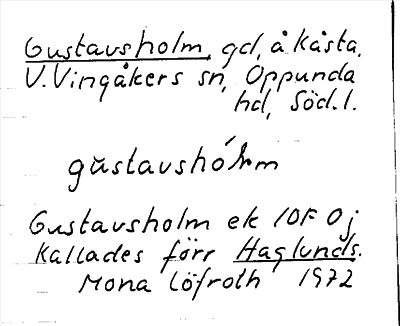 Gustavsholm, gd, å Kåsta,
V. Vingåkers sn, Oppunda
hd, Söd. l.
gŭstavshólm
Gustavsholm ek 10F 0j
Kallades förr Haglunds.
Mona Löfroth 1972